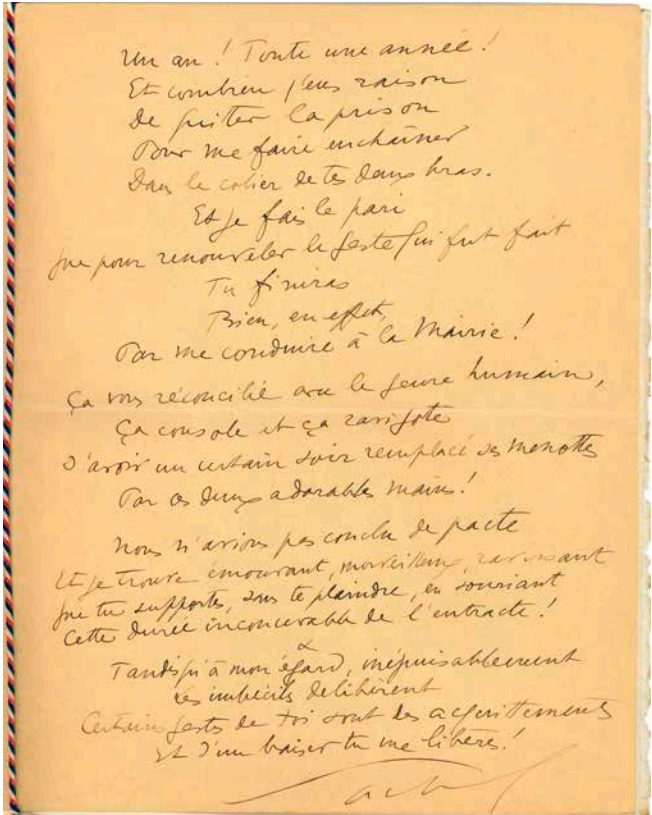 Un an ! Toute une année !
Et combien j'eus raison
De quitter la prison
Pour me faire enchaîner
Dans le colier de tes deux bras.
Et je fais le pari
Que pour renouveler le geste qui fut fait
Tu finiras
Bien, en effet,
Par me conduire à la Mairie !
Ça vous réconcilie avec le genre humain,
Ça console et ça ravigote
D'avoir un certain soir remplacé ses menottes
Par ces deux adorables mains !
Nous n'avions pas conclu de pacte
Et je trouve émouvant, merveilleux, ravissant
Que tu supportes, sans te plaindre, en souriant
Cette durée inconcevable de l'entracte !
Tandis qu'à mon égard, inépuisablement
Les imbéciles délibèrent
Certains gestes de toi sont des acquittements
Et d'un baiser tu me libères !